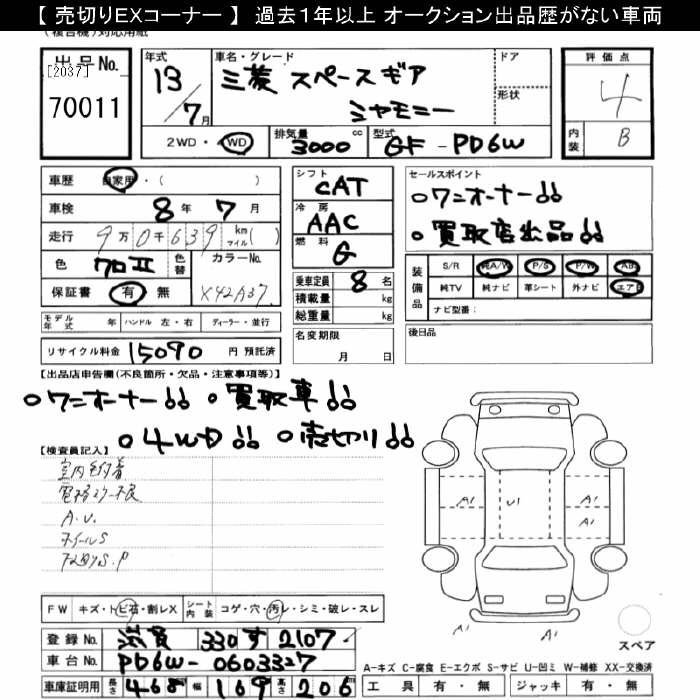 【 売切りEXコーナー 】 過去1年以上 オークション出品歴がない車両
(複合機)対応用紙
出品No.
[2037]
70011
年式 13/7月
車名・グレード 三菱 スペースギア
シャモニー
ドア
形状
評価点 4
内装 B
2WD・4WD 排気量 3000 cc 型式 GF-PD6W
車歴 自家用・( )
車検 8年 7月
走行 9万0千639 km マイル( )
色 クロⅡ 色替 カラーNo.
X42A37
保証書 有・無
シフト CAT
冷房 AAC
燃料 G
乗車定員 8名
積載量 kg
総重量 kg
名変期限
月 日
セールスポイント
○ワンオーナー!!
○買取店出品!!
装備品 S/R 純A/W P/S P/W AB
純TV 純ナビ 革シート 外ナビ エアB
ナビ型番:
後日品
モデル年式 年 ハンドル 左・右 ディーラー・並行
リサイクル料金 15090 円 預託済
【出品店申告欄(不良箇所・欠品・注意事項等)】
○ワンオーナー!! ○買取車!!
○4WD!! ○売切り!!
【検査員記入】
A.U.
ホイールS
A1
U1
A1
A1
A1
FW キズ・トビ石・割レX シート内装 コゲ・穴・汚レ・シミ・破レ・スレ
登録No. 滋賀 330 す 2107
車台No. PD6W-0603327
車庫証明用 長さ 468 幅 169 高さ 206
スペア
A-キズ C-腐食 E-エクボ S-サビ U-凹ミ W-補修 XX-交換済
工具 有・無 ジャッキ 有・無